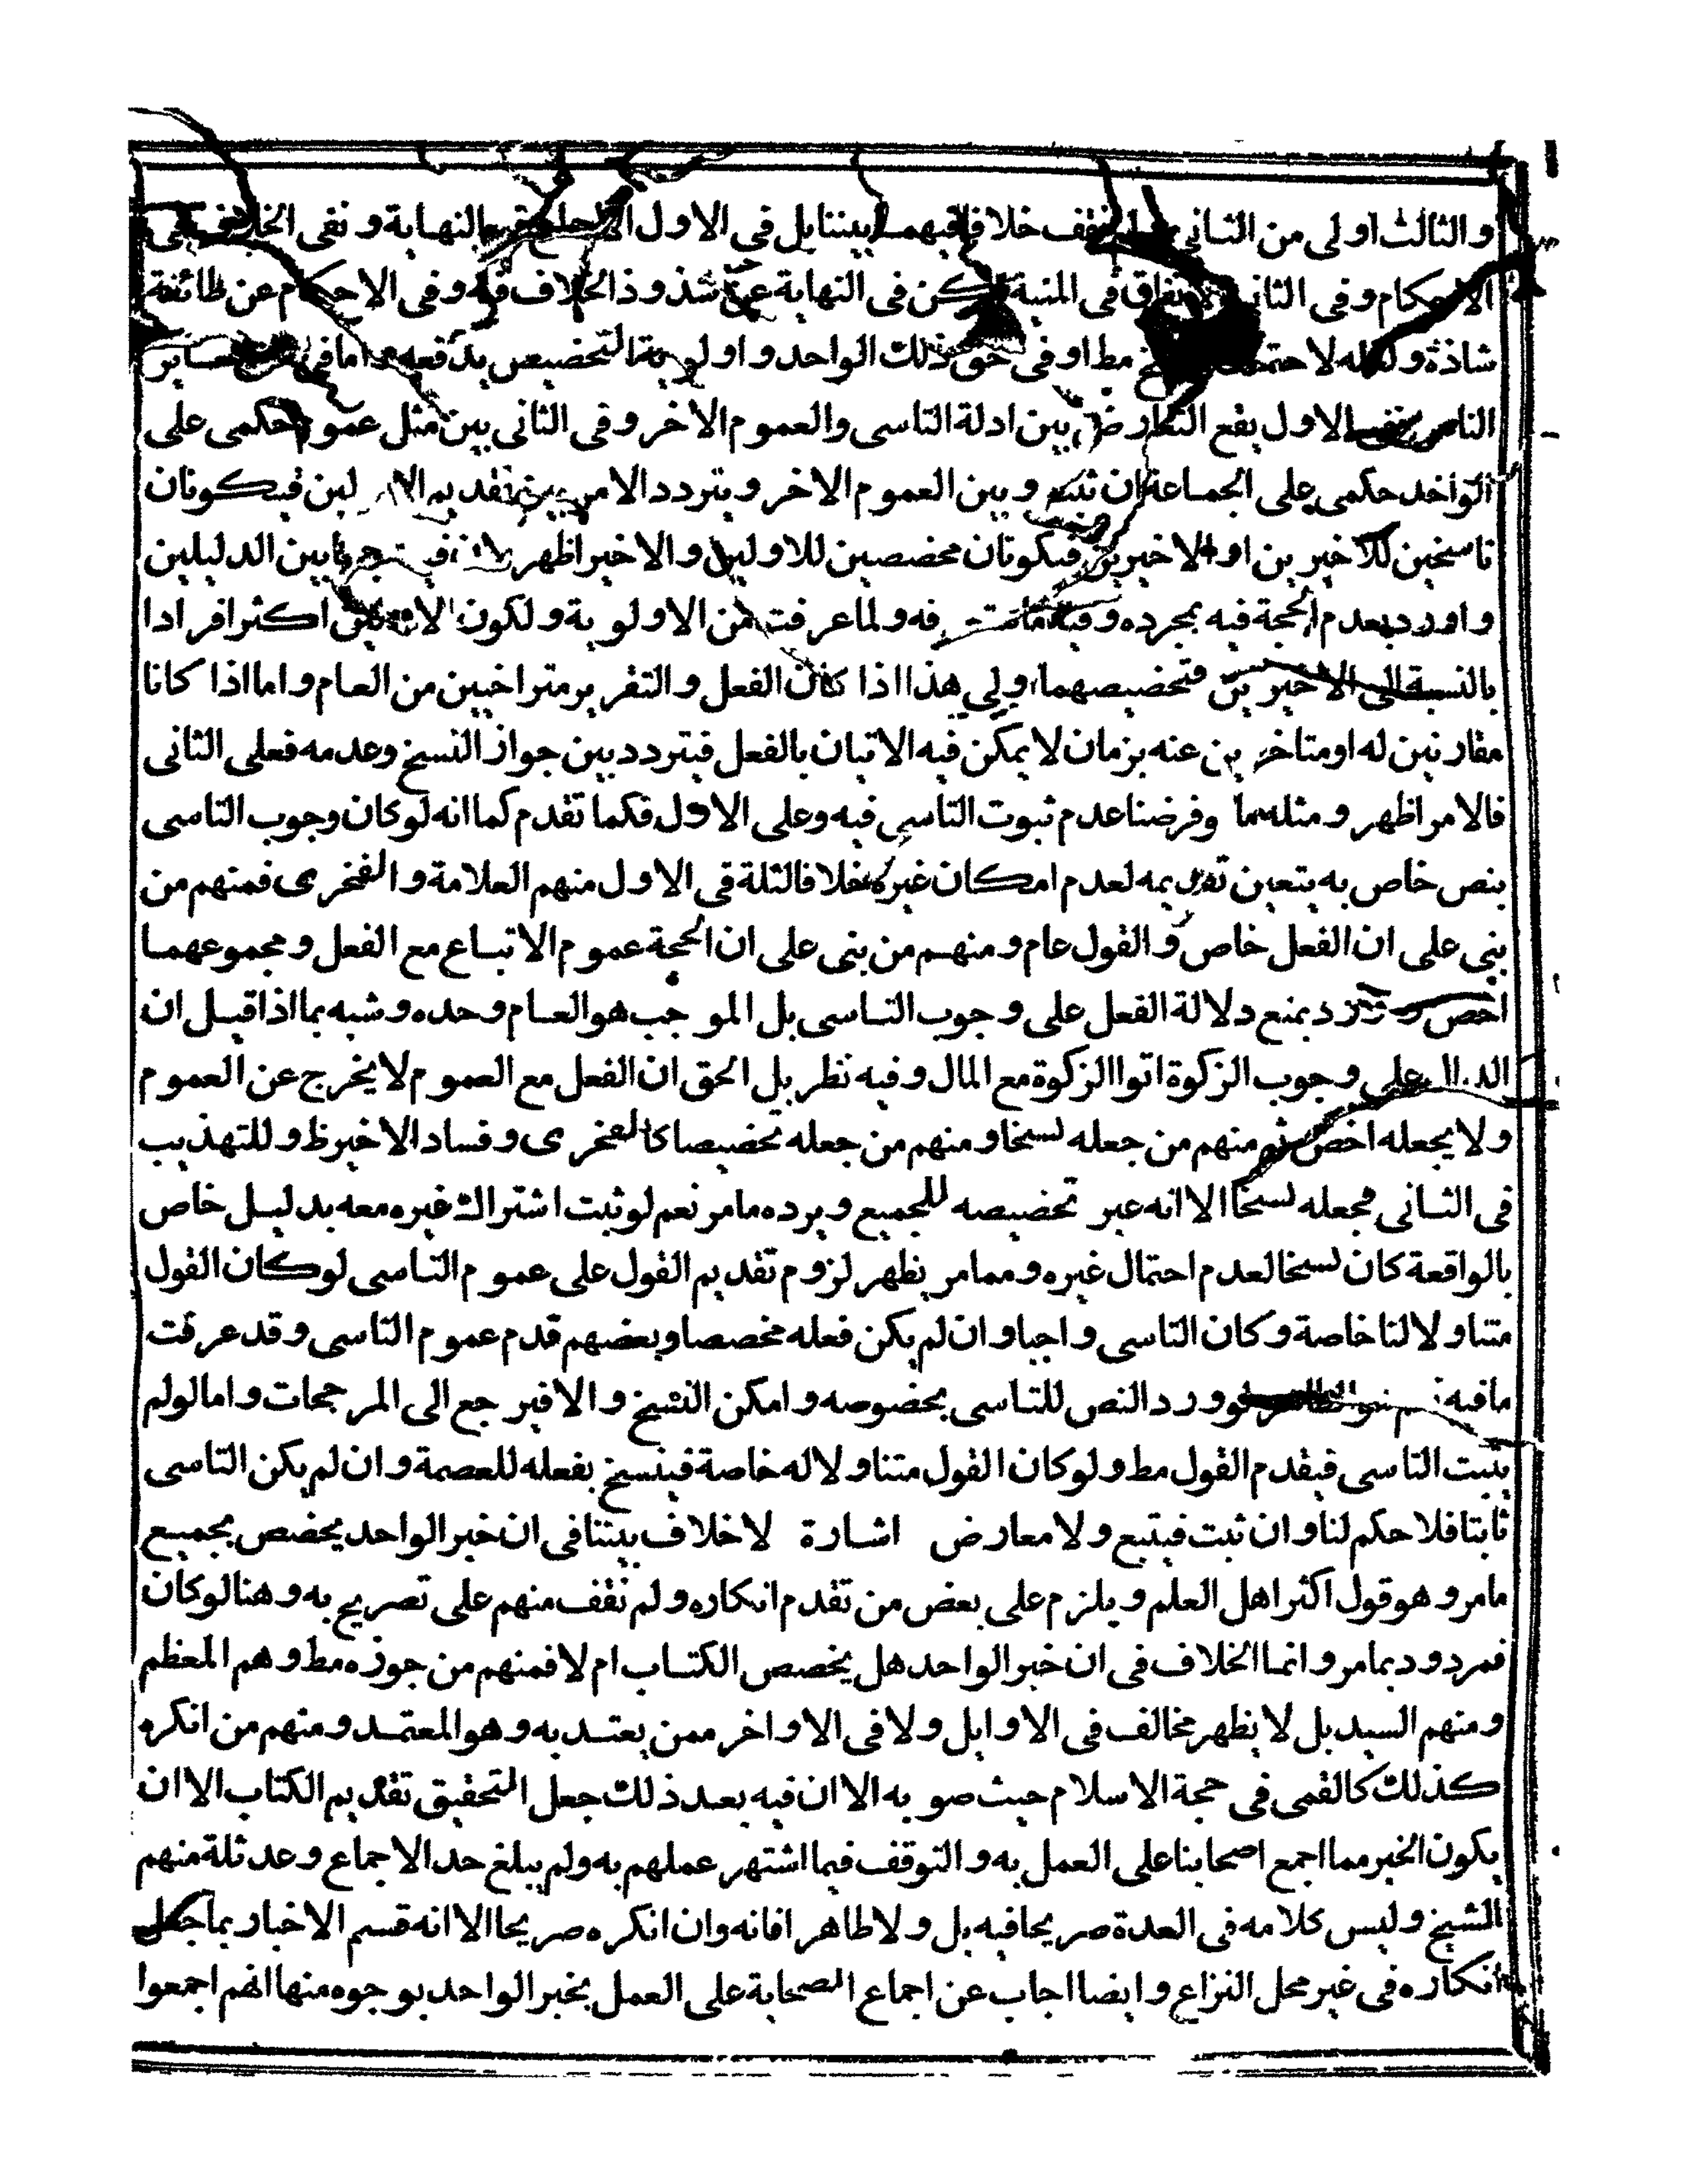 والثالث اولى من الثانى نقف خلافا فيهما بيننا بل فى الاول النهاية ونفى الخلاف فى
الاحكام وفى الثانى الاتفاق فى المنية لكن فى النهاية عن شذوذ الخلاف فيه وفى الاحكام عن طائفة
شاذة ولعله لاحتمال مط او فى حق ذلك الواحد واولوية التخصيص يدفعه واما فى ساير
الناس الاول يقع التعارض بين ادلة التاسى والعموم الاخر وفى الثانى بين مثل عموم حكمى على
الواحد حكمى على الجماعة ان ثبت وبين العموم الاخر ويتردد الامر بين تقديم فيكونان
ناسخين للاخيرين او الاخيرين فيكونان مخصصين للاولين والاخير اظهر بين الدليلين
واورد بعدم الحجة فيه بمجرده ولما عرفت من الاولوية ولكون اكثر افرادا
بالنسبة الى الاخيرين فتخصيصهما اولى هذا اذا كان الفعل والتقرير متراخيين من العام واما اذا كانا
مقارنين له او متاخرين عنه بزمان لا يمكن فيه الاتيان بالفعل فيتردد بين جواز النسخ وعدمه فعلى الثانى
فالامر اظهر ومثلهما وفرضنا عدم ثبوت التاسى فيه وعلى الاول فكما تقدم كما انه لو كان وجوب التاسى
بنص خاص به يتعين تقديمه لعدم امكان غيره خلافا لثلة فى الاول منهم العلامة والفخرى فمنهم من
بنى على ان الفعل خاص والقول عام ومنهم من بنى على ان الحجة عموم الاتباع مع الفعل ومجموعهما
اخص ورد بمنع دلالة الفعل على وجوب التاسى بل الموجب هو العام وحده وشبه بما اذا قيل ان
الدال على وجوب الزكوة اتوا الزكوة مع المال وفيه نظر بل الحق ان الفعل مع العموم لا يخرج عن العموم
ولا يجعله اخص ثم منهم من جعله نسخا ومنهم من جعله تخصيصا كالفخرى وفساد الاخير ظ وللتهذيب
فى الثانى فجعله نسخا الا انه عبر تخصيصه للجميع ويرده ما مر نعم لو ثبت اشتراك غيره معه بدليل خاص
بالواقعة كان نسخا لعدم احتمال غيره ومما مر يظهر لزوم تقديم القول على عموم التاسى لو كان القول
متناولا لنا خاصة وكان التاسى واجبا وان لم يكن فعله مخصصا وبعضهم قدم عموم التاسى وقد عرفت
ما فيه لو ورد النص للتاسى بخصوصه وامكن النسخ والا فيرجع الى المرجحات واما لو لم
يثبت التاسى فيقدم القول مط ولو كان القول متناولا له خاصة فينسخ بفعله للعصمة وان لم يكن التاسى
ثابتا فلا حكم لنا وان ثبت فيتبع ولا معارض اشارة لا خلاف بيننا فى ان خبر الواحد يخصص بجميع
ما مر وهو قول اكثر اهل العلم ويلزم على بعض من تقدم انكاره ولم نقف منهم على تصريح به وهنا لو كان
فمردود بما مر وانما الخلاف فى ان خبر الواحد هل يخصص الكتاب ام لا فمنهم من جوزه مط وهم المعظم
ومنهم السيد بل لا يظهر مخالف فى الاوايل ولا فى الاواخر ممن يعتد به وهو المعتمد ومنهم من انكره
كذلك كالقمى فى حجة الاسلام حيث صوبه الا ان فيه بعد ذلك جعل التحقيق تقديم الكتاب الا ان
يكون الخبر مما اجمع اصحابنا على العمل به والتوقف فيما اشتهر عملهم به ولم يبلغ حد الاجماع وعد ثلة منهم
الشيخ وليس كلامه فى العدة صريحا فيه بل ولا ظاهرا فانه وان انكره صريحا الا انه قسم الاخبار بما جعل
انكاره فى غير محل النزاع وايضا اجاب عن اجماع الصحابة على العمل بخبر الواحد بوجوه منها انهم اجمعوا